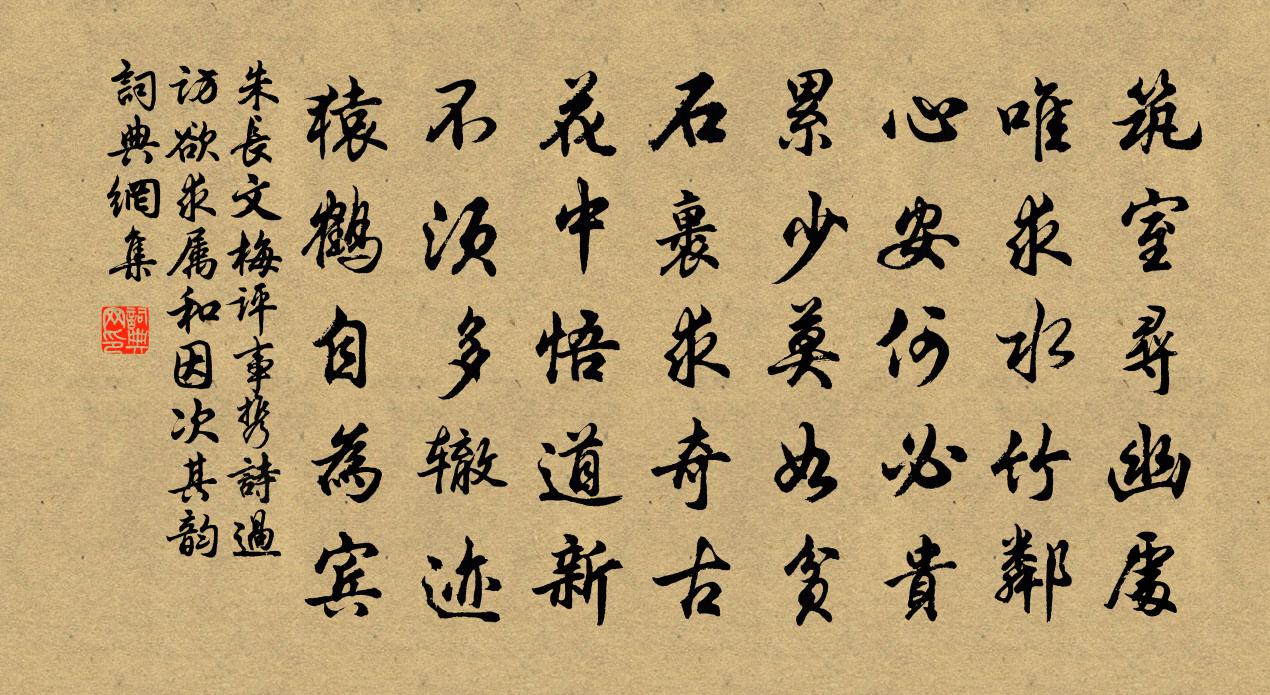 筑室尋幽處
唯求水竹鄰
心安何必貴
累少莫如貧
石裏求奇古
花中悟道新
不須多辙迹
猿鶴自為宾
朱長文梅評事携詩過
訪欲求属和因次其韵
詞典網集
詞典网印